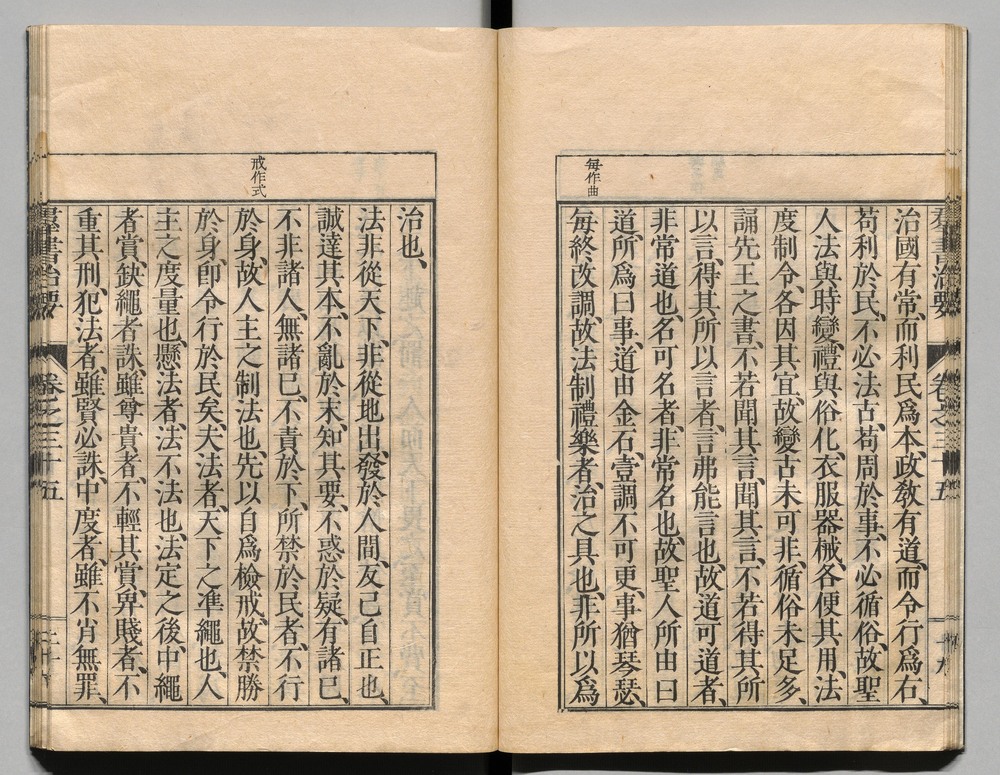 羣書治要 卷之三十五 十九
每作曲
治國有常、而利民爲本、政敎有道、而令行爲右、
苟利於民、不必法古、苟周於事、不必循俗、故聖
人法與時變、禮與俗化、衣服器械、各便其用、法
度制令、各因其宜、故變古未可非、循俗未足多、
誦先王之書、不若聞其言、聞其言、不若得其所
以言、得其所以言者、言弗能言也、故道可道者、
非常道也、名可名者、非常名也、故聖人所由曰
道、所爲曰事、道由金石、壹調不可更、事猶琴瑟、
每終改調、故法制禮樂者、治之具也、非所以爲
戒作式
治也、
法非從天下、非從地出、發於人間、反己自正也、
誠達其本、不亂於末、知其要、不惑於疑、有諸己、
不非諸人、無諸己、不責於下、所禁於民者、不行
於身、故人主之制法也、先以自爲檢戒、故禁勝
於身、卽令行於民矣、夫法者、天下之准繩也、人
主之度量也、懸法者、法不法也、法定之後、中繩
者賞、缺繩者誅、雖尊貴者、不輕其賞、卑賤者、不
重其刑、犯法者、雖賢必誅、中度者、雖不肖無罪、
羣書治要 卷之三十五 二十